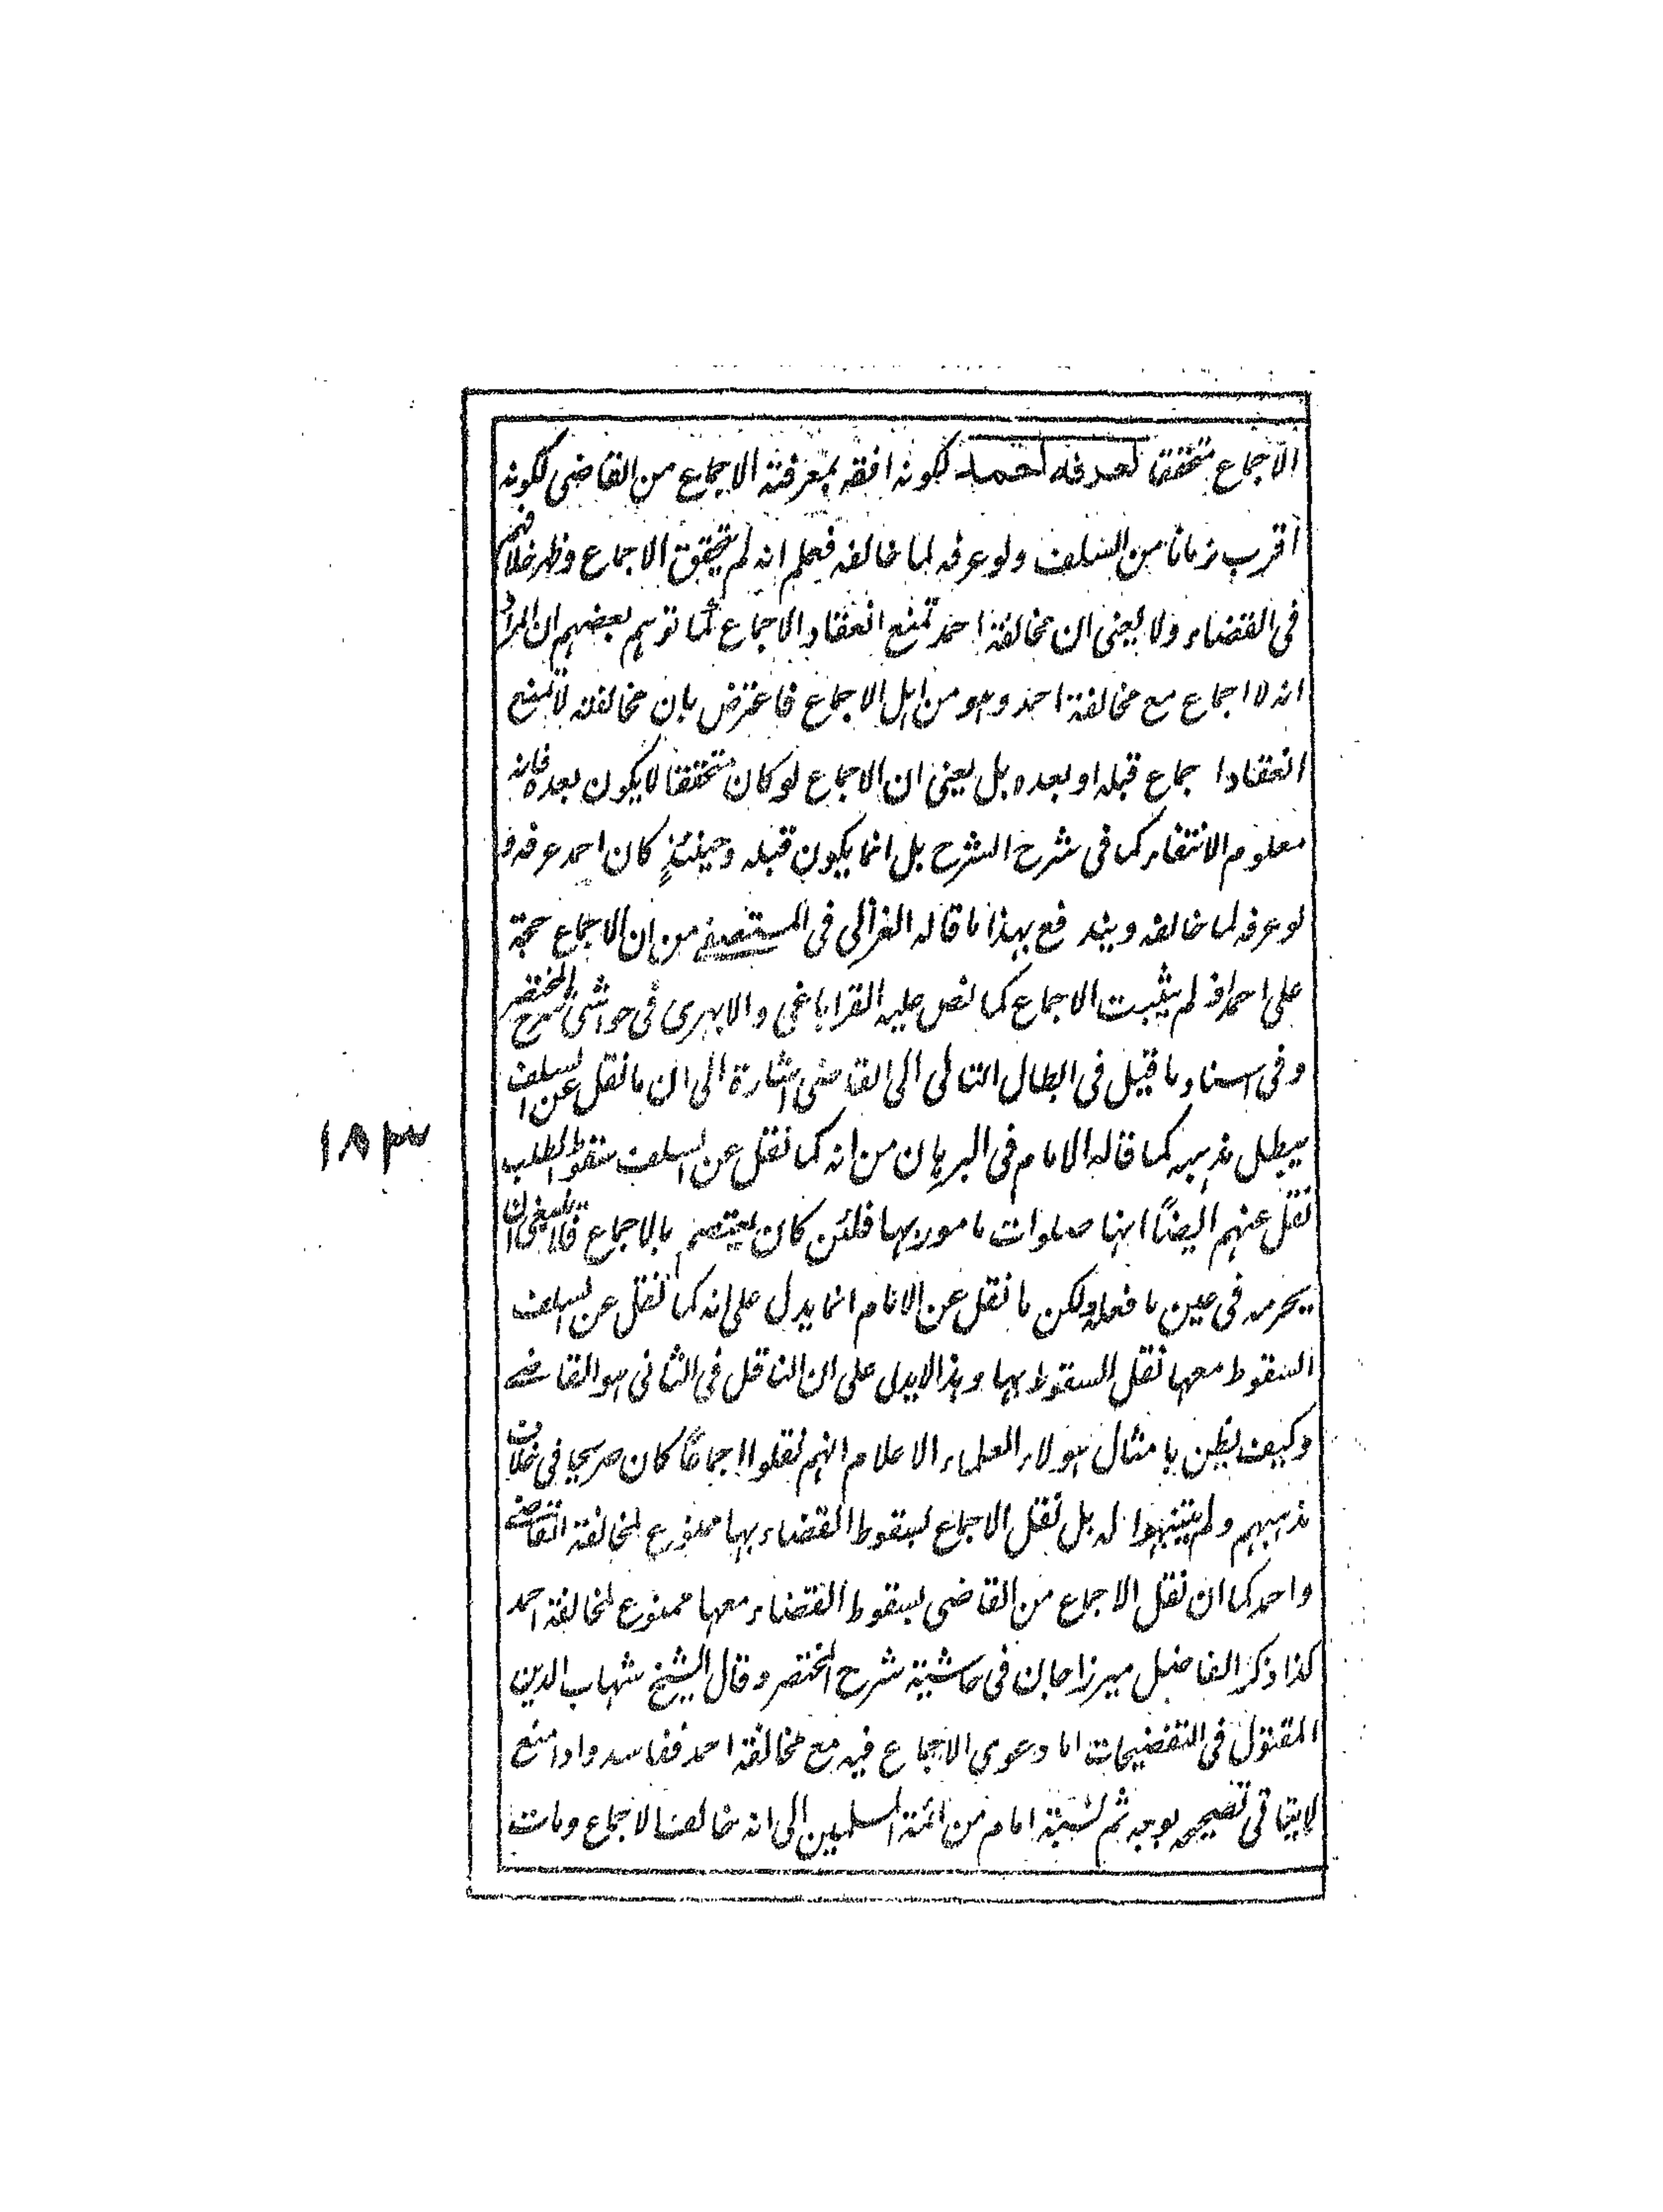 الاجماع متحققا لعرفه احمد لكونه افقه بمعرفة الاجماع من القاضى لكونه
اقرب زمانا من السلف ولو عرفه لما خالفه فعلم انه لم يتحقق الاجماع وظهر خلافهم
فى القضاء ولا يعنى ان مخالفة احمد تمنع انعقاد الاجماع كما توهم بعضهم ان المراد
انه لا اجماع مع مخالفة احمد وهو من اهل الاجماع فاعترض بان مخالفته لا تمنع
انعقاد اجماع قبله او بعده بل يعنى ان الاجماع لو كان متحققا لا يكون بعده فانه
معلوم الانتفاء كما فى شرح الشرح بل انما يكون قبله وحينئذٍ كان احمد عرفه و
لو عرفه لما خالفه ويندفع بهذا ما قاله الغزالى فى المستصفى من ان الاجماع حجة
على احمد اذ لم يثبت الاجماع كما نص عليه القراباغى والابهرى فى حواشى شرح المختصر
وفى اسناد ما قيل فى ابطال التالى الى القاضى اشارة الى ان ما نقل عن السلف
يبطل مذهبه كما قاله الامام فى البرهان من انه كما نقل عن السلف سقوط الطلب
نقل عنهم ايضًا انها صلوات مامور بها فلئن كان يعتصم بالاجماع فلا ينبغى ان
يخرمه فى عين ما فعله ولكن ما نقل عن الامام انما يدل على انه كما نقل عن السلف
السقوط معها نقل السقوط بها وهذا لا يدل على ان الناقل فى الثانى هو القاضى
وكيف يظن بامثال هولاء العلماء الاعلام انهم نقلوا اجماعًا كان صريحا فى خلاف
مذهبهم ولم يتنبهوا له بل نقل الاجماع لسقوط القضاء بها ممنوع لمخالفة القاضى
واحمد كما ان نقل الاجماع من القاضى لسقوط القضاء معها ممنوع لمخالفة احمد
كذا ذكر الفاضل ميرزا جان فى حاشية شرح المختصر وقال الشيخ شهاب الدين
المقتول فى التنقيحات اما دعوى الاجماع فيه مع مخالفة احمد ففاسد واذا منع
لا يتاتى تصحيحه بوجه ثم نسبة امام من ائمة المسلمين الى انه خالف الاجماع ومات
١٨٣